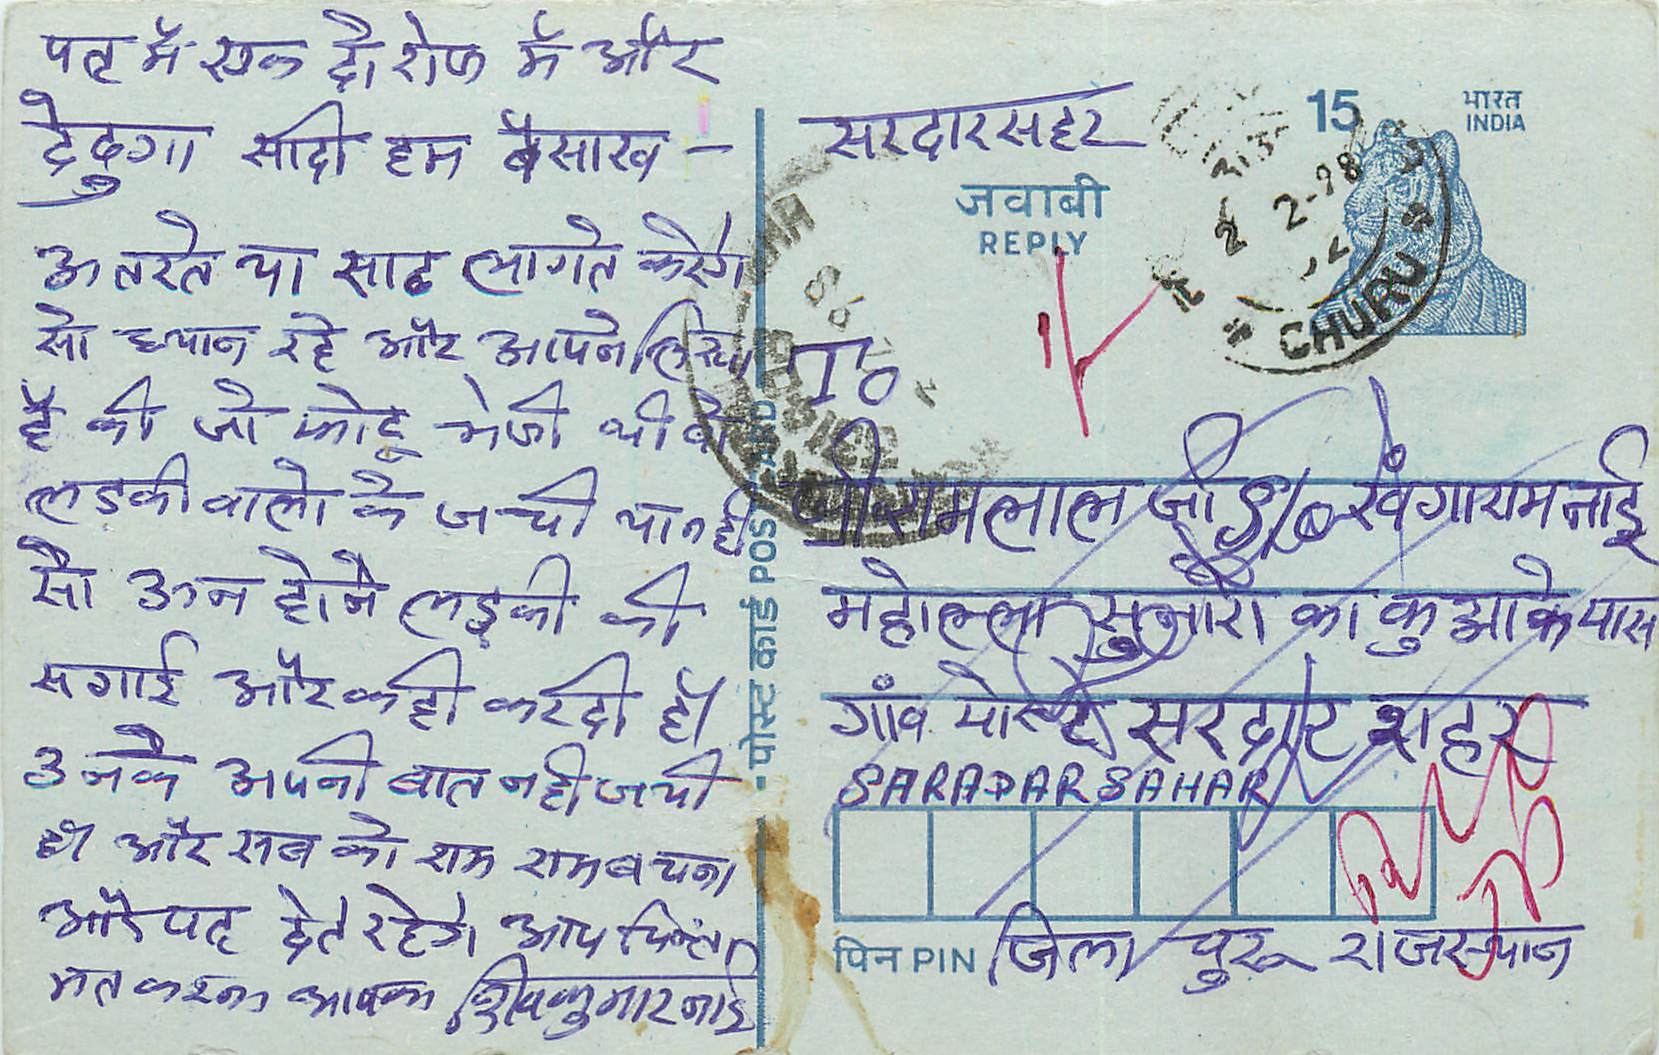 पत्र में एक दो रोज में और
दे दुगा सादी हम बैसाख –
ऊतरते या साढ लागते करेंगे
सो ध्यान रहे और आपने लिखा
है की जो फोटू भेजी थी वो
लडकी वालो के जची या नही
सो ऊन होने लड़की की
सगाई और कही करदी हैं।
उनके अपनी बात नही जची
है और सब को राम राम बचना
और पत्र देते रहेंगे आप चिन्ता
मत करना आपका शिवकुमार नाई
पोस्ट कार्ड POST CARD
सरदारसहर
जवाबी
REPLY
15
भारत
INDIA
CHURU
To
श्री रामलाल जी S/o खेंगाराम नाई
महोल्ला सुनारो का कुआ के पास
गांव पोस्ट सरदार शहर
SARADARSAHAR
पिन PIN
जिला चुरू राजस्थान